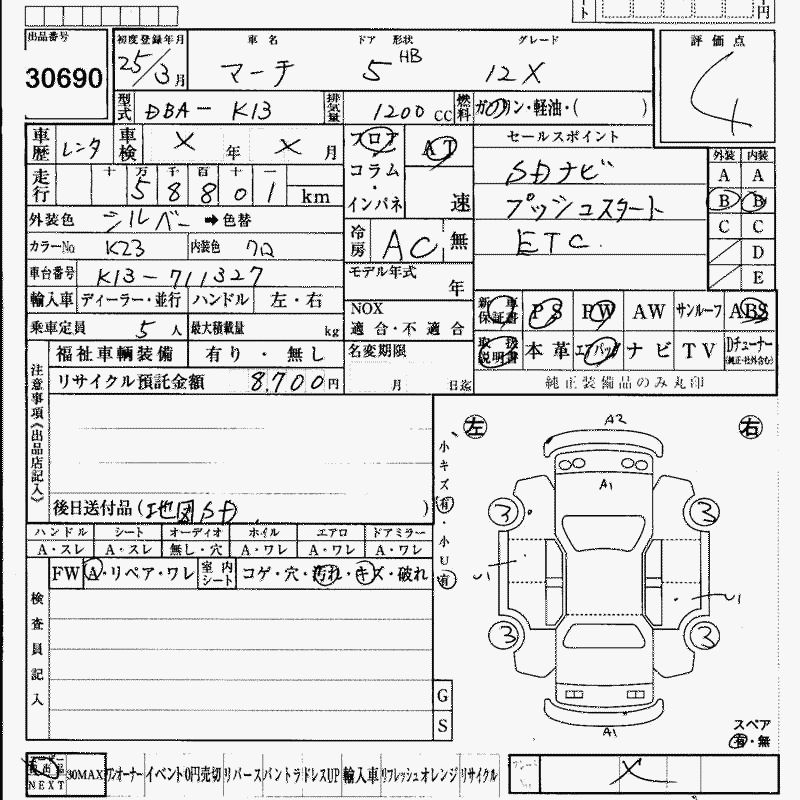 ート
円
出品番号
30690
初度登録年月
25/3月
車名
マーチ
ドア 形状
5 HB
グレード
12X
評価点
4
型式
DBA- K13
排気量
1200 CC
燃料
ガソリン・軽油・( )
車歴
レンタ
車検
× 年 × 月
フロア
コラム
・
インパネ
AT
速
セールスポイント
SDナビ
プッシュスタート
ETC.
外装 内装
A A
B B
C C
D
E
走行
十 万 千 百 十 一
5 8 8 0 1 km
外装色 シルバー ➡ 色替
カラーNo K23 内装色 クロ
冷房 AC 無
車台番号 K13-711327
モデル年式 年
輸入車 ディーラー・並行 ハンドル 左・右
NOX
適合・不適合
乗車定員 5 人 最大積載量 kg
新車保証書 PS PW AW サンルーフ ABS
取扱説明書 本革 エアバッグ ナビ TV Dチューナー
(純正・社外含む)
純正装備品のみ丸印
福祉車輌装備 有り・無し
名変期限
月 日迄
リサイクル預託金額 8,700円
注意事項《出品店記入》
後日送付品 (地図SD )
ハンドル シート オーディオ ホイル エアロ ドアミラー
A・スレ A・スレ 無し・穴 A・ワレ A・ワレ A・ワレ
FW A・リペア・ワレ 室内シート コゲ・穴・汚れ・キズ・破れ
検査員記入
G
S
小キズ有・小U有
左
右
A2
A1
3
3
U1
U1
3
3
A1
スペア
有・無
NEXT
30MAX ワンオーナー イベント 0円売切 リバース バントラ ドレスUP 輸入車 リフレッシュ オレンジ リサイクル
×